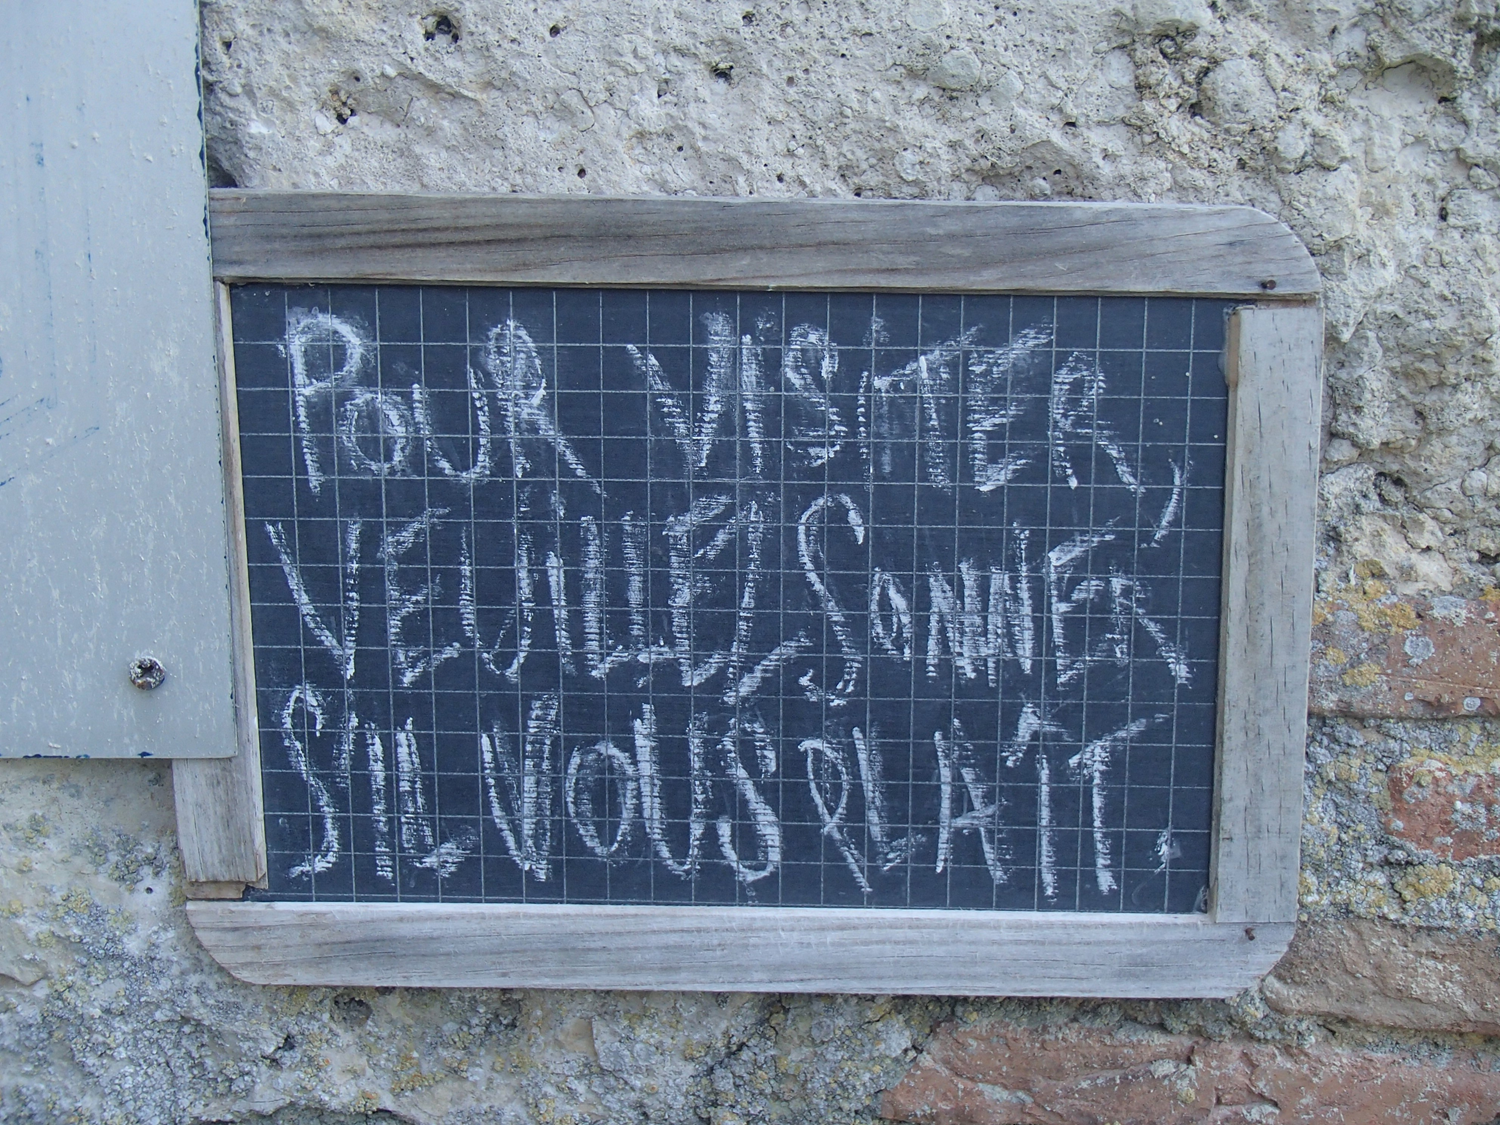 POUR VISITER,
VEUILLEZ SONNER
S'IL VOUS PLAÎT.